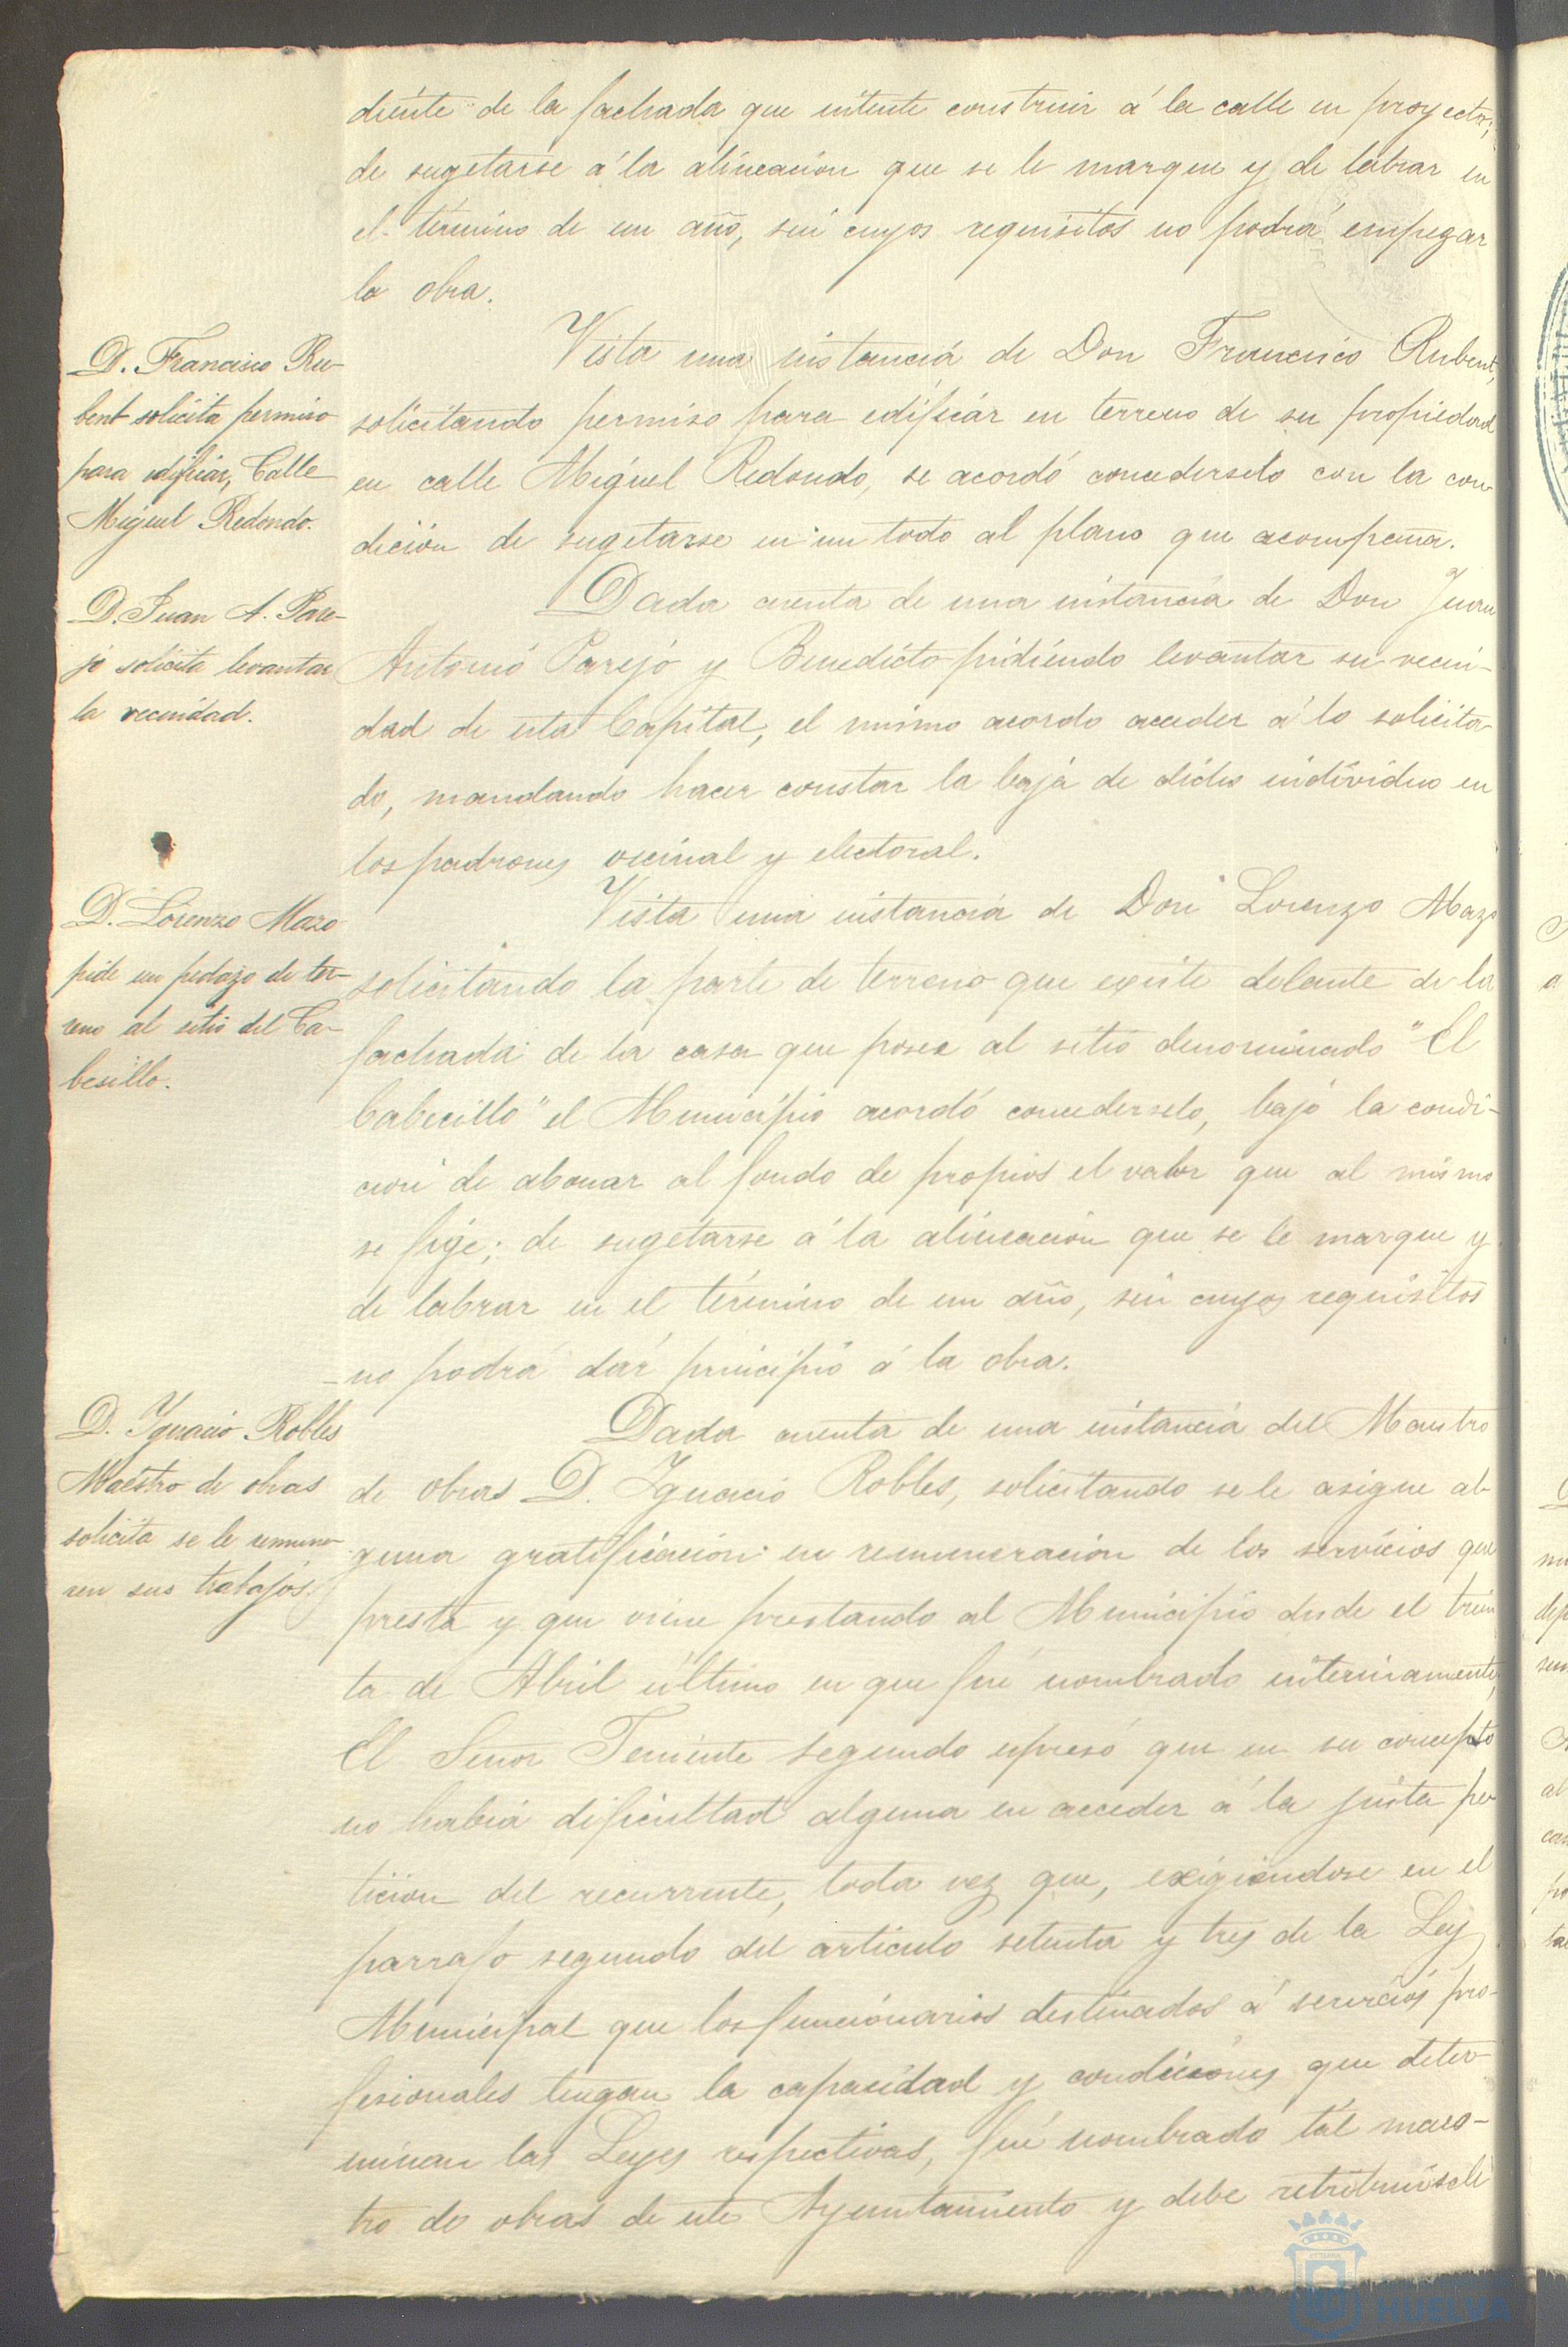 diente de la fachada que intente construir á la calle en proyecto;
de sugetarse á la alineación que se le marque y de labrar en
el término de un año, sin cuyos requisitos no podrá empezar
la obra.
D. Francisco Ru-
bent solicita permiso
para edificar, Calle
Miguel Redondo.
Vista una instancia de Don Francisco Rubent,
solicitando permiso para edificar en terreno de su propiedad
en calle Miguel Redondo, se acordó concederselo con la con
dición de sugetarse en un todo al plano que acompaña.
D. Juan A. Pare-
jo solicita levantar
la vecindad.
Dada cuenta de una instancia de Don Juan
Antonio Parejo y Benedicto pidiendo levantar su vecin-
dad de esta Capital, el mismo acordo acceder á lo solicita-
do, mandando hacer constar la baja de dicho individuo en
los padrones vecinal y electoral.
D. Lorenzo Mazo
pide un pedazo de ter-
reno al sitio del Ca-
besillo.
Vista una instancia de Don Lorenzo Mazo
solicitando la parte de terreno que existe delante de la
fachada de la casa que posee al sitio denominado "El
Cabecillo" el Municipio acordó concederselo, bajo la condi-
cion de abonar al fondo de propios el valor que al mismo
se fije; de sugetarse á la alineación que se le marque y
de labrar en el término de un año, sin cuyos requisitos
no podrá dar principio á la obra.
D. Ignacio Robles
Maestro de obras
solicita se le remune-
ren sus trabajos.
Dada cuenta de una instancia del Maestro
de obras D. Ignacio Robles, solicitando se le asigne al-
guna gratificación en remuneración de los servicios que
presta y que viene prestando al Municipio desde el trein
ta de Abril último en que fué nombrado interinamente,
El Señor Teniente segundo espresó que en su concepto
no había dificultad alguna en acceder á la justa pe
tición del recurrente, toda vez que, exigiendose en el
parrafo segundo del articulo setenta y tres de la Ley
Municipal que los funcionarios destinados á servicios pro-
fesionales tengan la capacidad y condiciones que deter-
minan las Leyes respectivas, fué nombrado tál maes-
tro de obras de este Ayuntamiento y debe retribuirsele
HUELVA